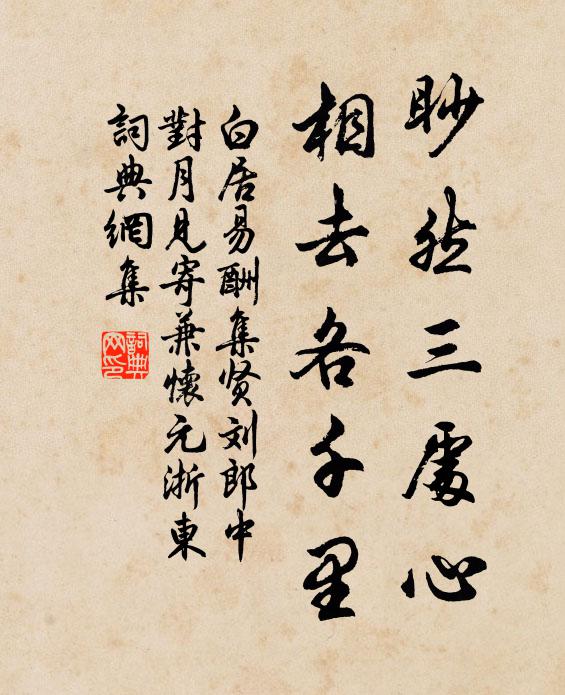 眇然三處心
相去各千里
白居易酬集贤刘郎中
對月見寄兼懷元浙東
詞典網集
詞典网印